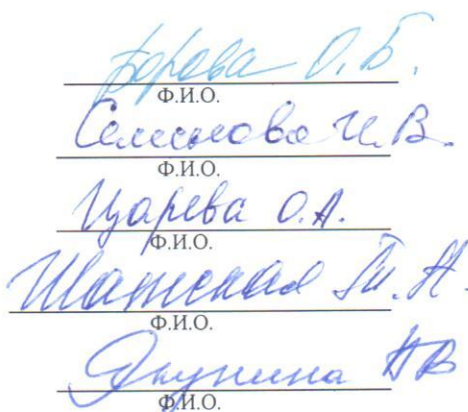 Борова О.Б.
Ф.И.О.
Семенова И.В.
Ф.И.О.
Царева О.А.
Ф.И.О.
Шатская Т.Н.
Ф.И.О.
Якунина НВ
Ф.И.О.